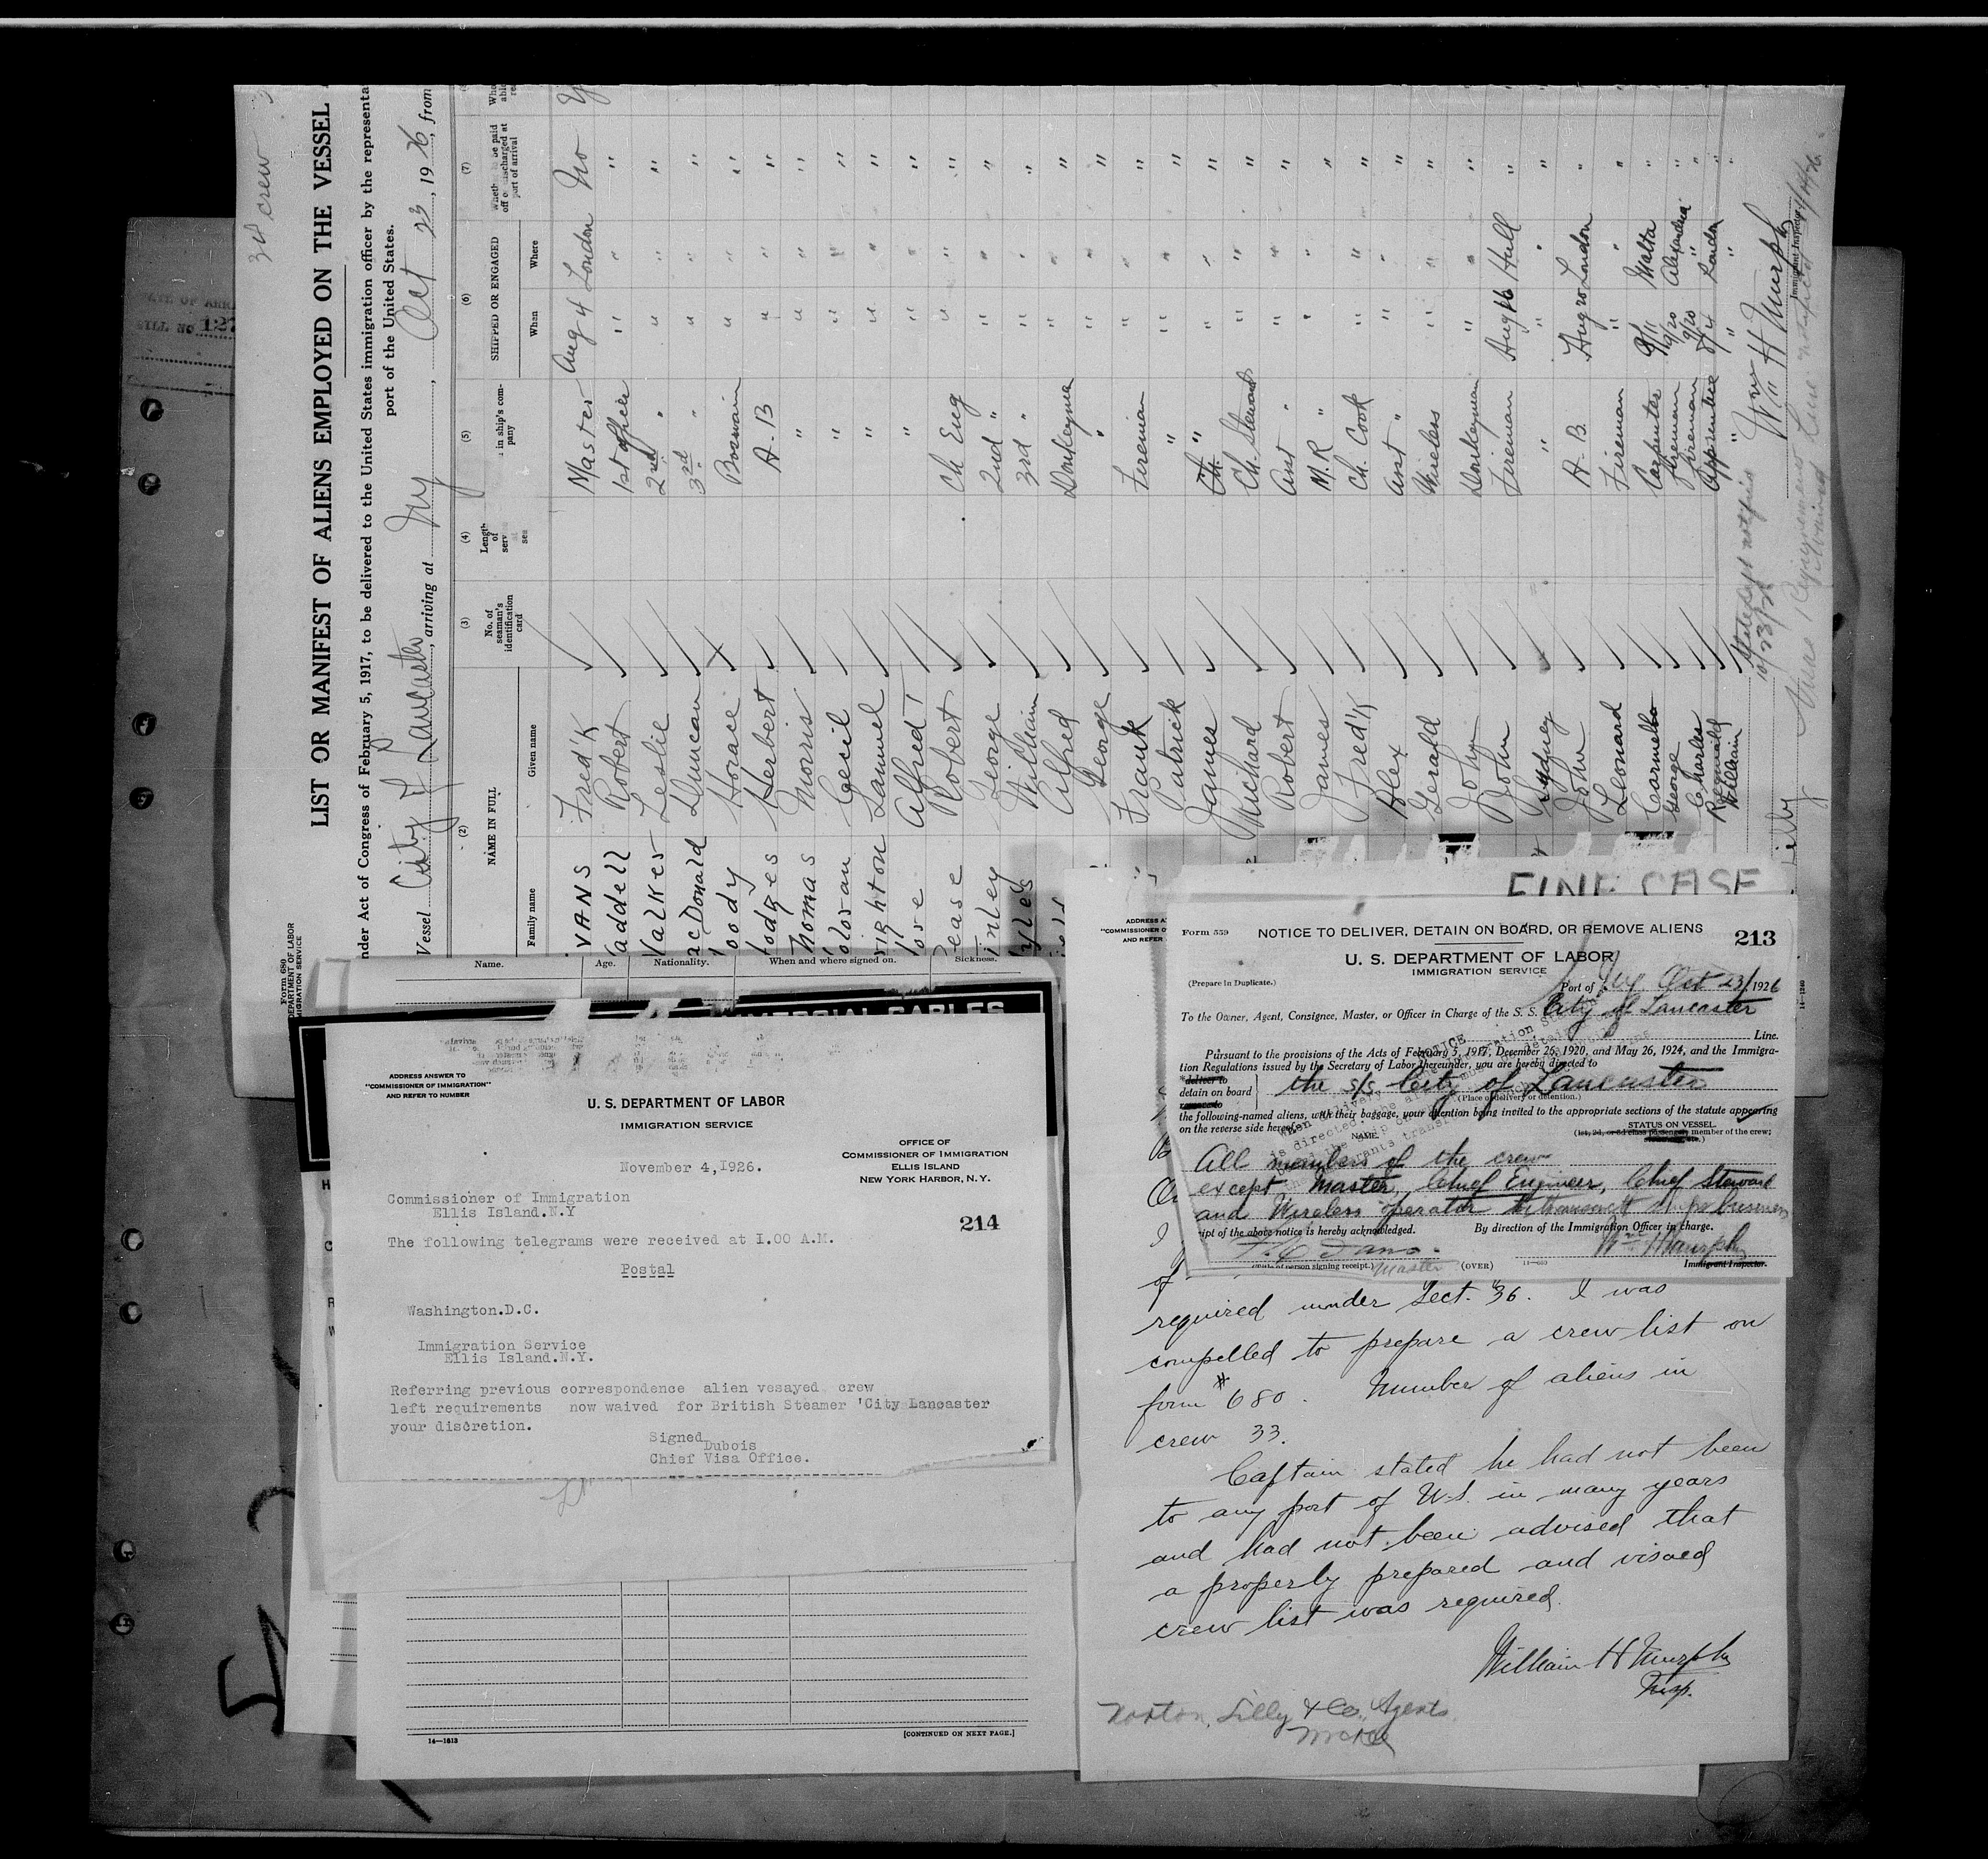 3d crew
LIST OR MANIFEST OF ALIENS EMPLOYED ON THE VESSEL
nder Act of Congress of February 5, 1917, to be delivered to the United States immigration officer by the representa
port of the United States.
Vessel City of Lancaster, arriving at Ny, Oct 23, 1926, from
Form 680
DEPARTMENT OF LABOR
MIGRATION SERVICE
(2) (3) (4) (5) (6) (7)
NAME IN FULL
Family name Given name
No. of seaman's identification card
Length of
in ship's company
SHIPPED OR ENGAGED
When Where
be paid off or discharged at port of arrival
VANS Fred'K Master Aug 4 London No
addell Robert 1st officer " " "
Valker Leslie 2nd " " " "
ac Donald Duncan 3rd " " " "
oody Horace Boswain " " "
odges Herbert A-B " " "
homas Morris " " " "
oloran Cecil " " " "
righton Samuel " " " "
ore Alfred T " " " "
ease Robert Ch Eng " " "
inley George 2nd " " " "
yles William 3rd " " " "
Alfred Donkeyman " " "
George " " " "
Frank Fireman " " "
Patrick " " " "
James " " " "
Richard Ch. Steward " " "
Robert Asst " " " "
James M.R " " " "
Fred'K Ch. Cook " " "
Alex Asst " " " "
Gerald Wireless " " "
John Donkeyman " " "
John Fireman Aug 16 Hull "
Sydney " " " "
John A.B. Aug 20 London "
Leonard Fireman " " "
Carmelo Carpenter 9/11 Malta "
George Fireman 9/20 Alexandria "
Charles Fireman 9/20 " "
Reginald Apprentice 8/4 London "
William " " " "
10/23/26
Wm H Murphy
Immigrant Inspector
BILL NO 127
FINE CASE
ADDRESS A
"COMMISSIONER O
AND REFER
Name. Age. Nationality. When and where signed on. Sickness.
ADDRESS ANSWER TO
"COMMISSIONER OF IMMIGRATION"
AND REFER TO NUMBER
U. S. DEPARTMENT OF LABOR
IMMIGRATION SERVICE
OFFICE OF
COMMISSIONER OF IMMIGRATION
ELLIS ISLAND
NEW YORK HARBOR, N.Y.
November 4,1926.
Commissioner of Immigration
Ellis Island.N.Y
214
The following telegrams were received at I.00 A.M.
Postal
Washington.D.C.
Immigration Service
Ellis Island.N.Y.
Referring previous correspondence alien vesayed crew
left requirements now waived for British Steamer 'City Lancaster
your discretion.
Signed
Dubois
Chief Visa Office.
14—1613
[CONTINUED ON NEXT PAGE.]
Form 559
NOTICE TO DELIVER, DETAIN ON BOARD, OR REMOVE ALIENS
213
U. S. DEPARTMENT OF LABOR
IMMIGRATION SERVICE
(Prepare in Duplicate.)
Port of N.Y. Oct 23/1926
To the Owner, Agent, Consignee, Master, or Officer in Charge of the S. S. City of Lancaster
Line.
Pursuant to the provisions of the Acts of February 5, 1917, December 26, 1920, and May 26, 1924, and the Immigra-
tion Regulations issued by the Secretary of Labor thereunder, you are hereby directed to
*deliver to
detain on board
remove to
the s/s City of Lancaster
(Place of delivery or detention.)
the following-named aliens, with their baggage, your attention being invited to the appropriate sections of the statute appearing
on the reverse side hereof.
NAME
STATUS ON VESSEL.
(1st, 2d, or 3d class passenger, member of the crew;
All members of the crew
except Master, Chief Engineer, Chief Steward
and Wireless operator to transact ships business
ipt of the above notice is hereby acknowledged.
By direction of the Immigration Officer in charge.
Wm H Murphy
(Title of person signing receipt.) Master
(OVER)
Immigrant Inspector.
of
required under Sect. 36. I was
compelled to prepare a crew list on
form #680. Number of aliens in
crew 33.
Captain stated he had not been
to any port of U.S. in many years
and had not been advised that
a properly prepared and visaed
crew list was required.
William H Murphy
Insp.
Norton, Lilly & Co., Agents.